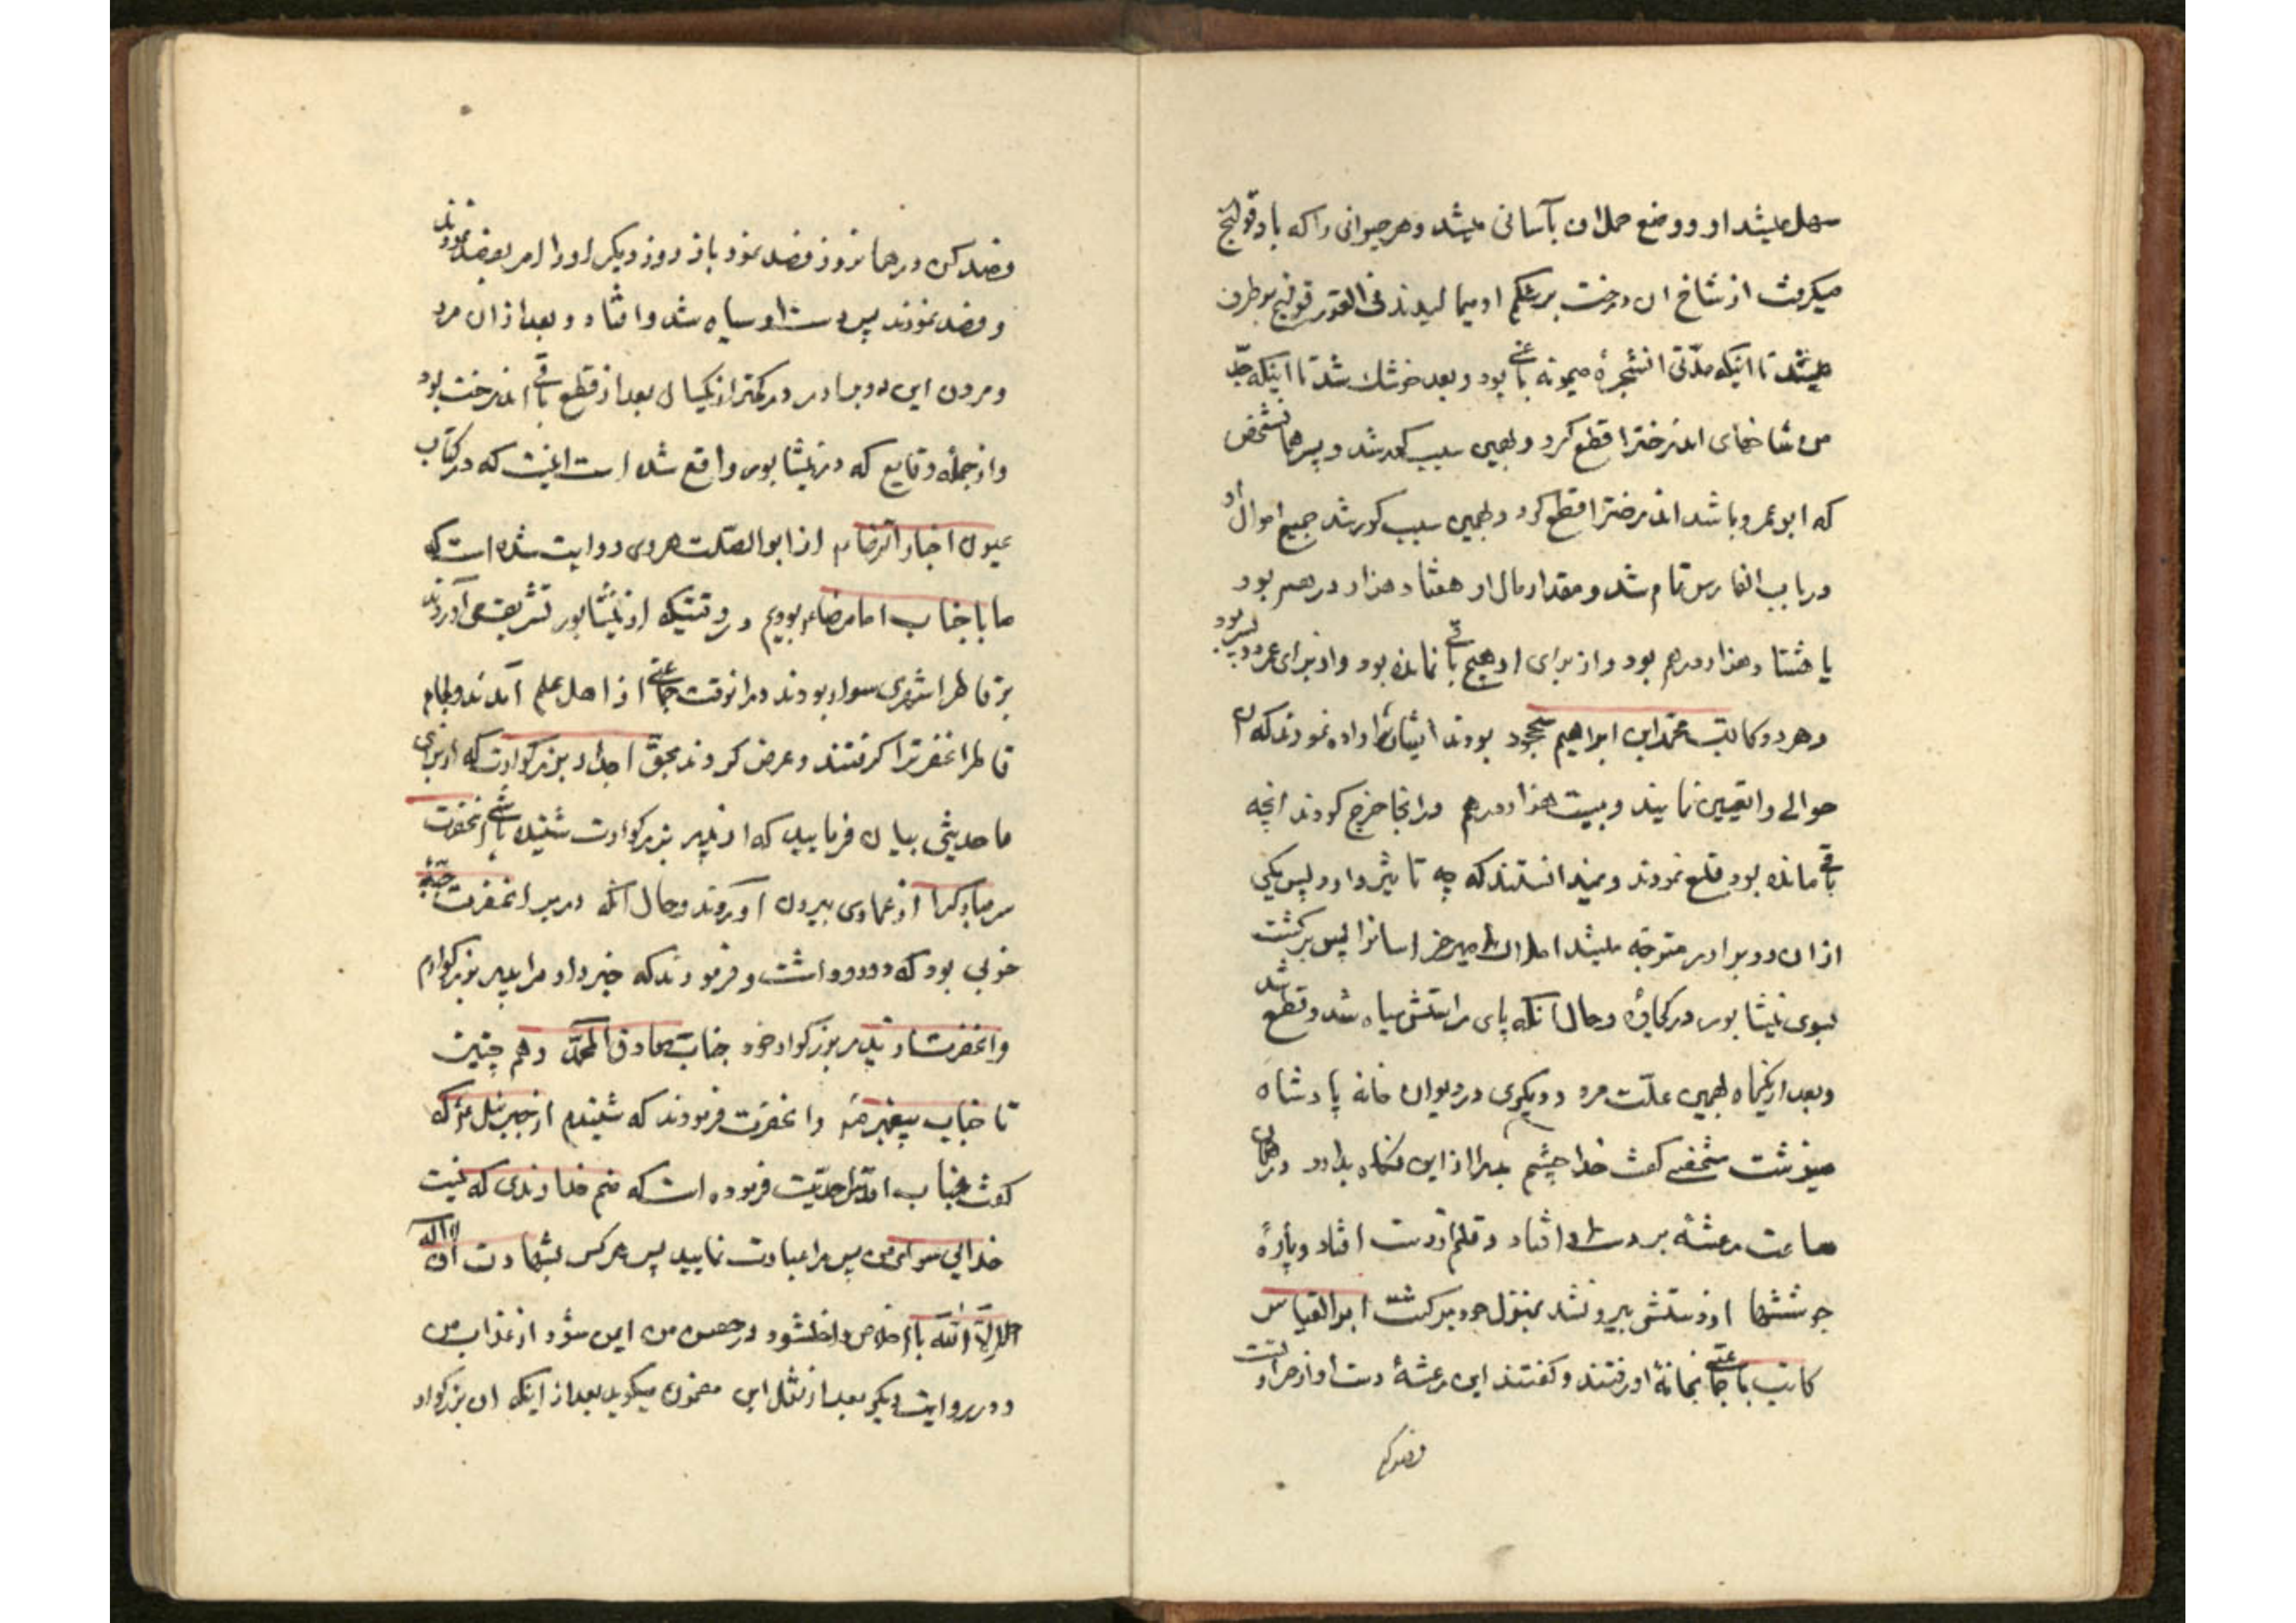 سهل میشد او و وضع حمل ان بآسانی میشد و هر حیوانی را که باد قولنج
میکرفت از شاخ ان درخت بر شکم او میمالیدند فی الفور قولنج برطرف
میشد تا اینکه مدّتی انشجرهٔ میمونه باقی بود و بعد خوشك شد تا اینکه جدّ
من شاخهای اندرخترا قطع کرد و بهمین سبب کور شد و پسر همانشخص
که ابو عمرو باشد اندرخترا قطع کرد و بهمین سبب کور شد جمیع اموال او
در باب الفارس تمام شد و مقدار مال او هفتاد هزار درهم بود
یا هشتاد هزار درهم بود و از برای او هیچ باقی نمانده بود و از برای عمرو دو پسر بود
و هر دو کاتب محمّد ابن ابراهیم بودند ایشان اراده نمودند که ان
حوالے را تعمیر نمایند و بیست هزار درهم در انجا خرج کردند انچه
باقی مانده بود قلع نمودند و نمیدانستند که چه تاثیر دارد پس یکی
از ان دو برادر متوجّه میشد املاك امیر خراسانرا پس برکشت
بسوی نیشابور در کجاوه و حال آنکه پای راستش سیاه شد و قطع شد
و بعد از یکماه بهمین علّت مرد و دیکری در دیوان خانه پادشاه
مینوشت شخصی کفت خدا چشم بد را از این نکاه بدارد در همان
ساعت رعشهٔ بر دست او افتاد و قلم از دست افتاد و پارهٔ
جوششها از دستش بیرون شد بمنزل خود برکشت ابو العباس
کاتب با جماعتی بخانهٔ او رفتند و کفتند این رعشهٔ دست او از حرارتست
فصد کن
فصد کن در همانروز فصد نمود باز روز دیکر او را امر بفصد نمودند
و فصد نمودند پس دست او سیاه شد و افتاد و بعد از ان مرد
و مردن این دو برادر در کمتر از یکسال بعد از قطع باقی اندرخت بود
و از جملهٔ وقایع که در نیشابور واقع شده است اینست که در کتاب
عیون اخبار الرّضا ع از ابو الصّلت هروی روایت شده است که
ما با جناب امام رضا ع بودیم در وقتیکه از نیشابور تشریف می آوردند
بر قاطر اشهری سوار بودند در انوقت جماعتی از اهل علم آمدند و لجام
قاطر انحضرترا کرفتند و عرض کردند بحقّ اجداد بزرکوارت که از برای
ما حدیثی بیان فرمایید که از پدر بزرکوارت شنیده باشی انحضرت
سر مبارکرا از عماری بیرون آوردند و حال آنکه در بر انحضرت جبّهٔ
خوبی بود که دو رو داشت و فرمودند که خبر داد مرا پدر بزرکوارم
و انحضرت از پدر بزرکوار خود جناب صادق آل محمّد و هم چنین
تا جناب پیغمبر ص و انحضرت فرمودند که شنیدم از جبرئیل ع که
کفت جناب اقدّس احدیّت فرموده است که منم خداوندی که نیست
خدایی سوای من پس مرا عبادت نمایید پس هر کس بشهادت ان لا اله
الا الله با اخلاص داخل شود در حصن من ایمن شود از عذاب من
و در روایت دیکر بعد از نقل این مضمون میکوید بعد از اینکه ان بزرکوار